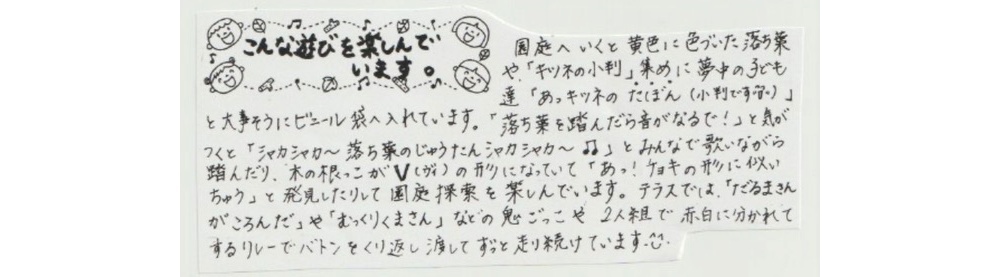 こんな遊びを楽しんで
います。
園庭へいくと黄色に色づいた落ち葉
や「キツネの小判」集めに夢中の子ども
達「あっキツネのたぼん(小判です)」
と大事そうにビニール袋へ入れています。「落ち葉を踏んだら音がなるで!」と気が
つくと「シャカシャカ〜落ち葉のじゅうたんシャカシャカ〜♫」とみんなで歌いながら
踏んだり、木の根っこがV(ヴイ)の形になっていて「あっ!チョキの形に似い
ちゅう」と発見したりして園庭探索を楽しんでいます。テラスでは、「だるまさん
がころんだ」や「むっくりくまさん」などの鬼ごっこや2人組で赤白に分かれて
するリレーでバトンをくり返し渡してずっと走り続けています。